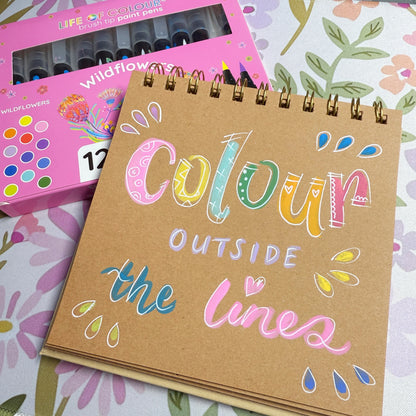 LIFE OF COLOUR
brush tip paint pens
Wildflowers
WILDFLOWERS
12
Colour
OUTSIDE
the lines